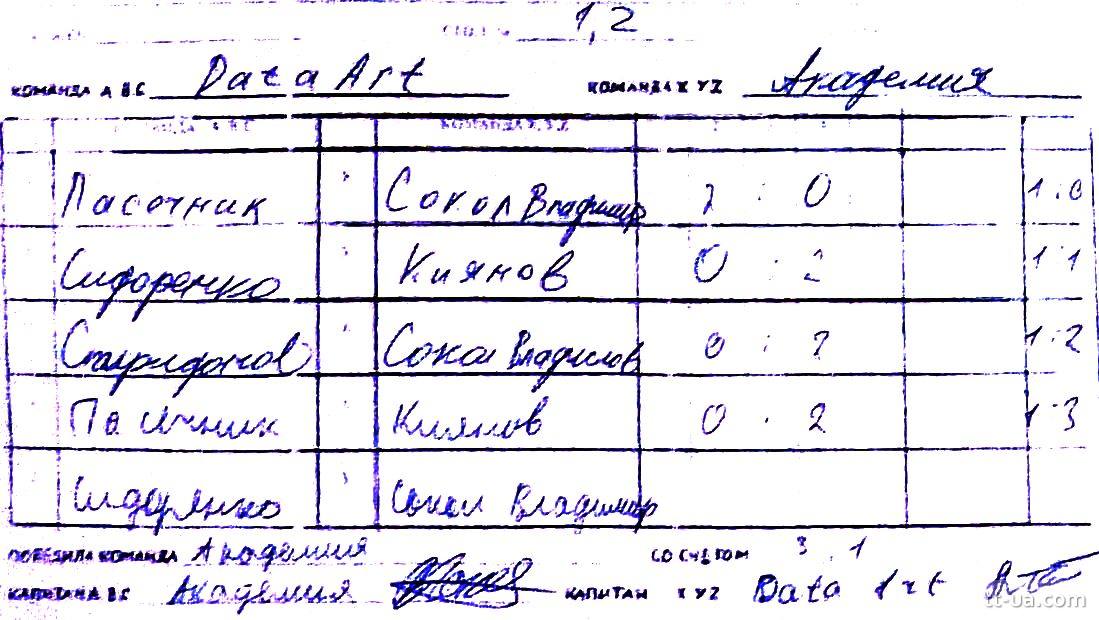 СТОЛ № 1,2
КОМАНДА А В С Data Art КОМАНДА Х У Z Академия
КОМАНДА А, В, С КОМАНДА Х, У, Z
Пасочник Сокол Владимир 2 : 0 1 : 0
Сидоренко Киянов 0 : 2 1 : 1
Спиридонов Сокол Владимов 0 : 2 1 : 2
Пасичник Киянов 0 : 2 1 : 3
Сидорянко Сокол Владимир
ПОБЕДИЛА КОМАНДА Академия СО СЧЕТОМ 3 : 1
КАПИТАН А В С Академия КАПИТАН Х У Z Data Art
tt-ua.com